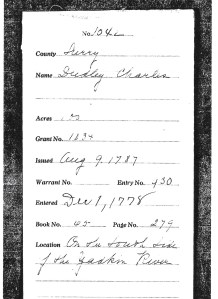 No. 104
County Surry
Name Dudley Charles
Acres
Grant No. 1834
Issued Aug 9. 1787
Warrant No. Entry No. 430
Entered Dec 1, 1778
Book No. 65 Page No. 279
Location On the South side
of the Yadkin River